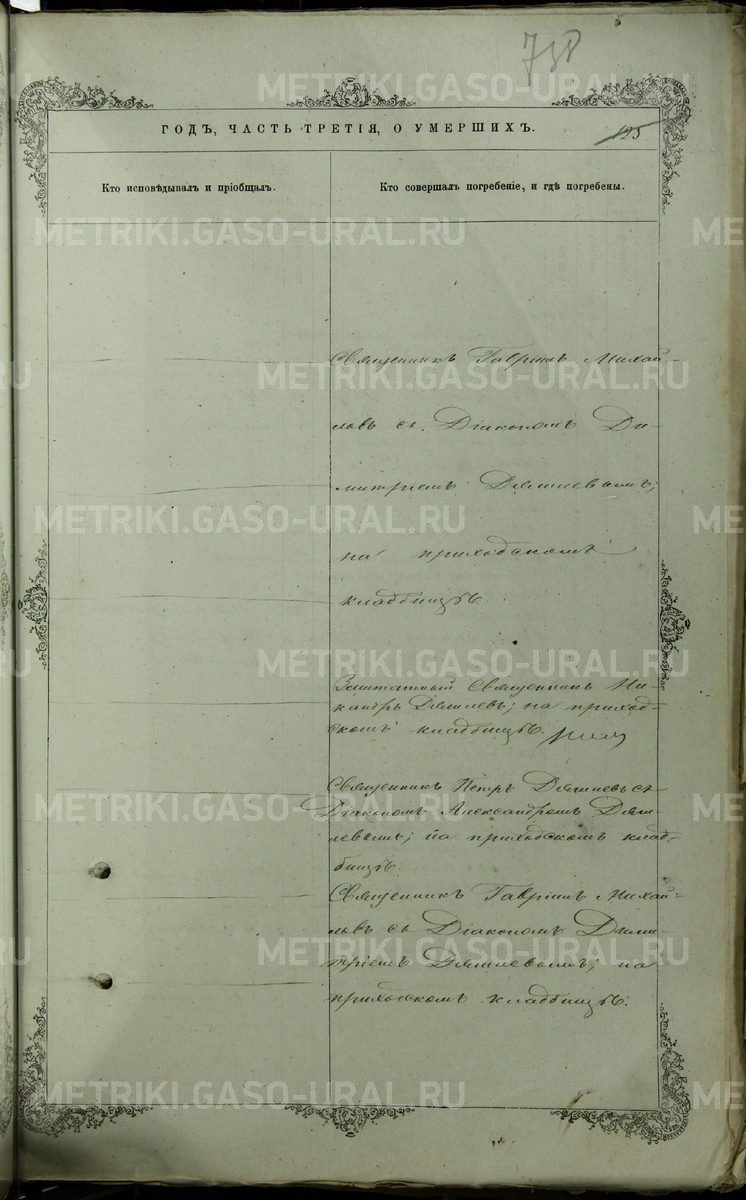 738
ГОДЪ, ЧАСТЬ ТРЕТІЯ, О УМЕРШИХЪ.
125
Кто исповѣдывалъ и пріобщалъ.
Кто совершалъ погребеніе, и гдѣ погребены.
Священникъ Гавріилъ Михай-
ловъ съ Діакономъ Ди-
митріемъ
на приходскомъ
кладбищѣ.
Заштатный Священникъ Ни-
кандръ на приход-
скомъ кладбищѣ.
Священникъ Петръ съ
Діакономъ Александромъ
на приходскомъ клад-
бищѣ.
Священникъ Гавріилъ Михай-
ловъ съ Діакономъ Дими-
тріемъ на
приходскомъ кладбищѣ.
METRIKI.GASO-URAL.RU